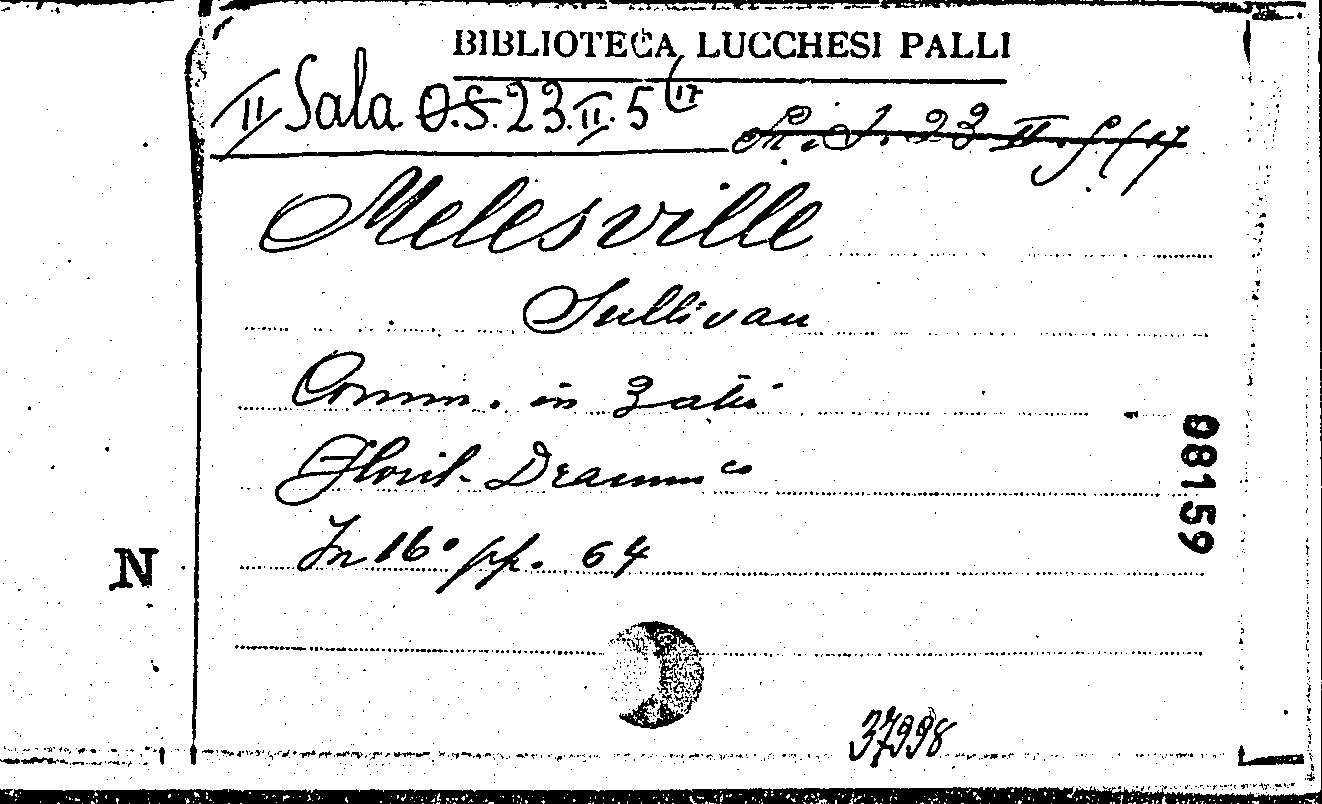 BIBLIOTECA LUCCHESI PALLI
II Sala O.S. 23. II. 5 (17
Melesville
Sullivan
Comm. in 3 atti
Floril. Dramm co
In 16° pp. 64
N
98159
37998